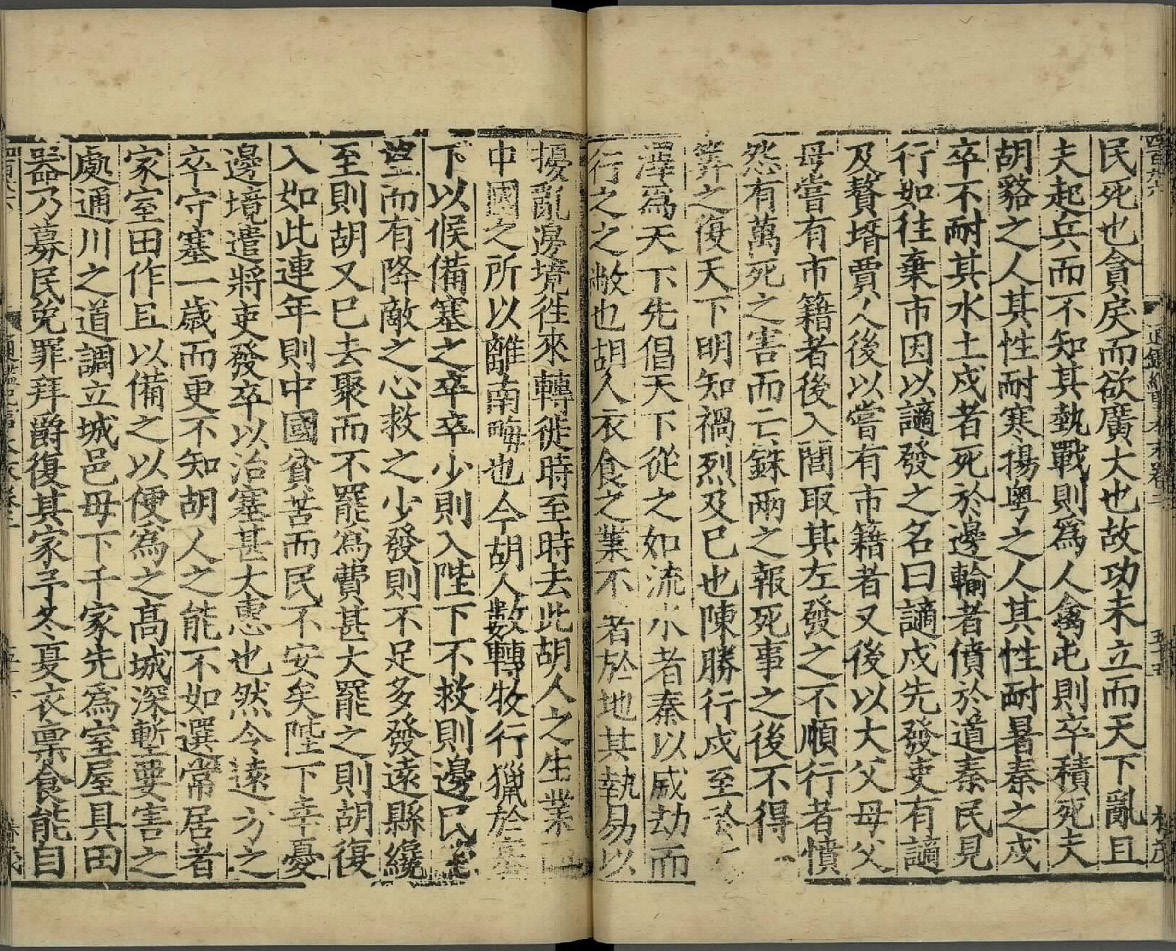 民死也貪戾而欲廣大也故功未立而天下亂且
夫起兵而不知其執戰則爲人禽屯則卒積死夫
胡貉之人其性耐寒揚粤之人其性耐暑秦之戍
卒不耐其水土戍者死於邊輸者僨於道秦民見
行如往棄市因以讁發之名曰讁戍先發吏有讁
及贅壻賈人後以嘗有市籍者又後以大父母父
母嘗有市籍者後入閭取其左發之不順行者憤
怨有萬死之害而亡銖兩之報死事之後不得
筭之復天下明知禍烈及已也陳勝行戍至於
澤爲天下先倡天下從之如流水者秦以威劫而
行之之敝也胡人衣食之業不者於地其執易以
擾亂邊境徃來轉徙時至時去此胡人之生業
中國之所以離南畮也今胡人數轉牧行獵於塞
下以候備塞之卒卒少則入陛下不救則邊民
望而有降敵之心救之少發則不足多發遠縣纔
至則胡又已去聚而不罷爲費甚大罷之則胡復
入如此連年則中國貧苦而民不安矣陛下幸憂
邊境遣將吏發卒以治塞甚大惠也然今遠方之
卒守塞一歳而更不知胡人之能不如選常居者
家室田作且以備之以便爲之髙城深塹要害之
處通川之道調立城邑毋下千家先爲室屋具田
器乃募民免罪拜爵復其家予冬夏衣稟食能自